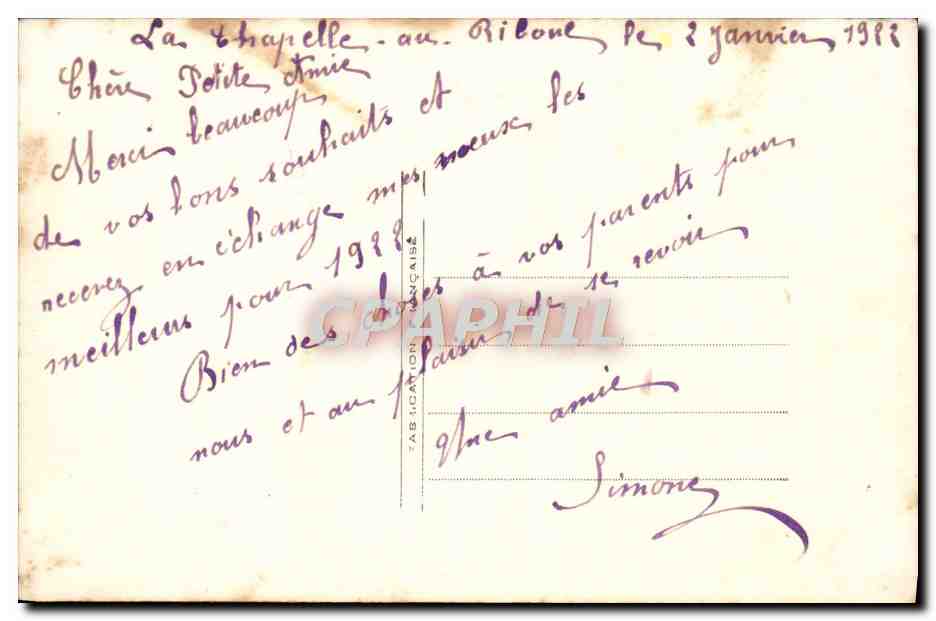 La Chapelle-au-Riboul le 2 Janvier 1922
Chère Petite Amie
Merci beaucoup
de vos bons souhaits et
recevez en échange mes voeux les
meilleurs pour 1922.
Bien des choses à vos parents pour
nous et au plaisir de se revoir
Une amie
Simone
FABRICATION FRANÇAISE
CPAPHIL